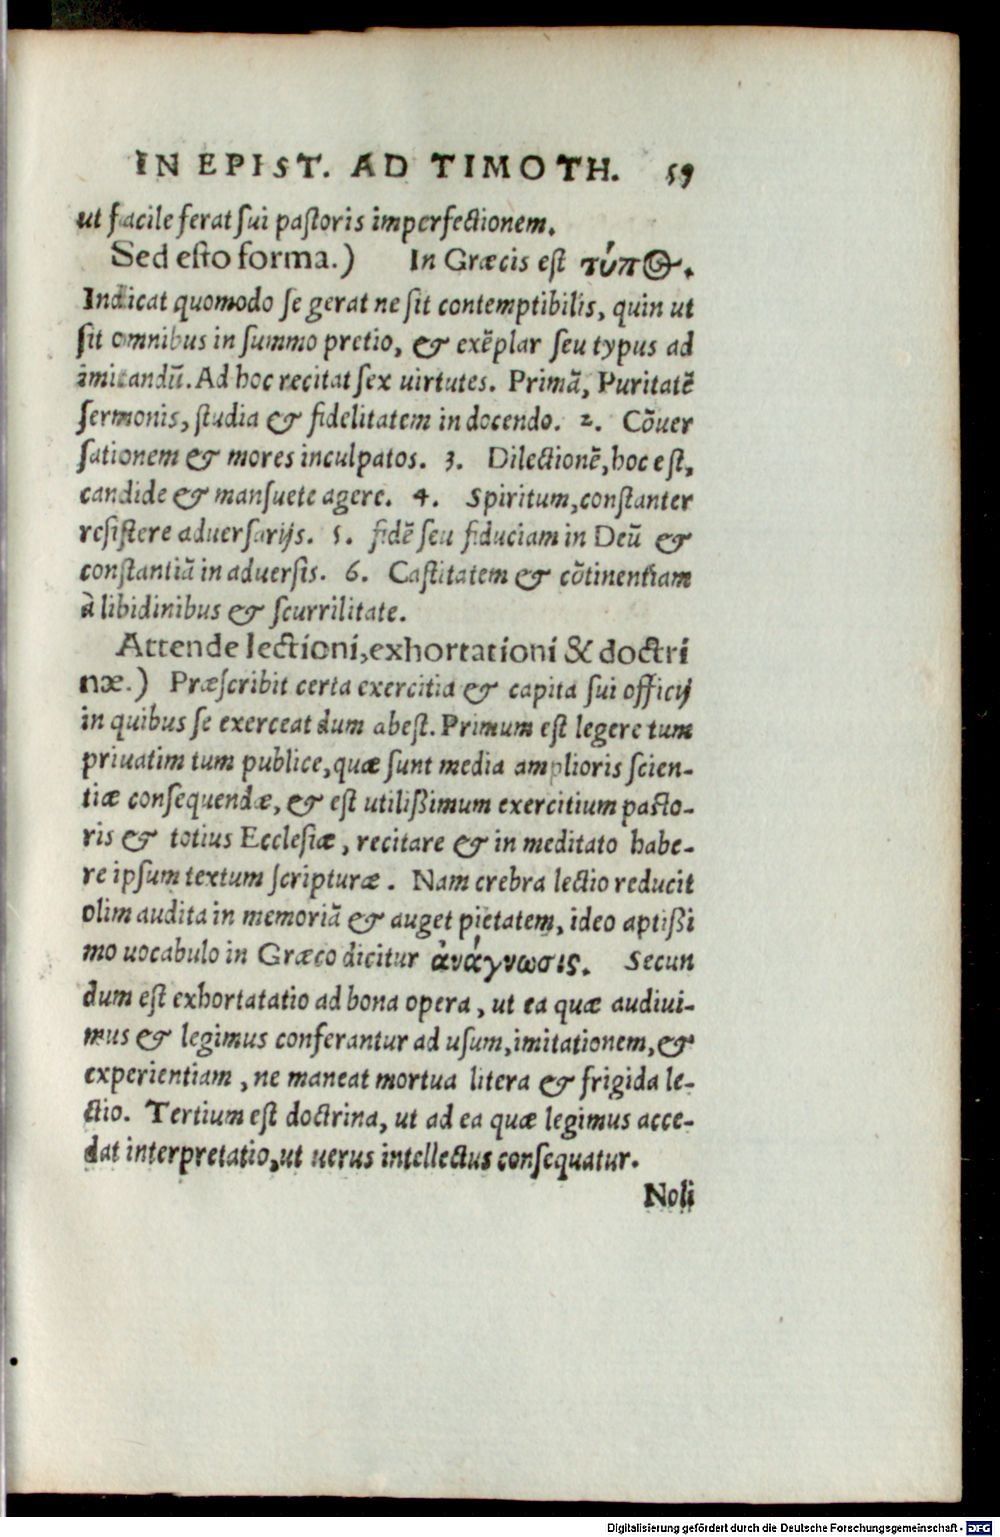 IN EPIST. AD TIMOTH. 59
ut facile ferat sui pastoris imperfectionem.
Sed esto forma.) In Græcis est τύπος.
Indicat quomodo se gerat ne sit contemptibilis, quin ut
sit omnibus in summo pretio, & exẽplar seu typus ad
imitandũ. Ad hoc recitat sex uirtutes. Primã, Puritatẽ
sermonis, studia & fidelitatem in docendo. 2. Cõuer
sationem & mores inculpatos. 3. Dilectionẽ, hoc est,
candide & mansuete agere. 4. Spiritum, constanter
resistere aduersarijs. 5. fidẽ seu fiduciam in Deũ &
constantiã in aduersis. 6. Castitatem & cõtinentiam
à libidinibus & scurrilitate.
Attende lectioni, exhortationi & doctri
næ.) Præscribit certa exercitia & capita sui officij
in quibus se exerceat dum abest. Primum est legere tum
priuatim tum publice, quæ sunt media amplioris scien-
tiæ consequendæ, & est utilißimum exercitium pasto-
ris & totius Ecclesiæ, recitare & in meditato habe-
re ipsum textum scripturæ. Nam crebra lectio reducit
olim audita in memoriã & auget pietatem, ideo aptißi
mo uocabulo in Græco dicitur ἀνάγνωσις. Secun
dum est exhortatatio ad bona opera, ut ea quæ audiui-
mus & legimus conferantur ad usum, imitationem, &
experientiam, ne maneat mortua litera & frigida le-
ctio. Tertium est doctrina, ut ad ea quæ legimus acce-
dat interpretatio, ut uerus intellectus consequatur.
Noli
Digitalisierung gefördert durch die Deutsche Forschungsgemeinschaft - DFG